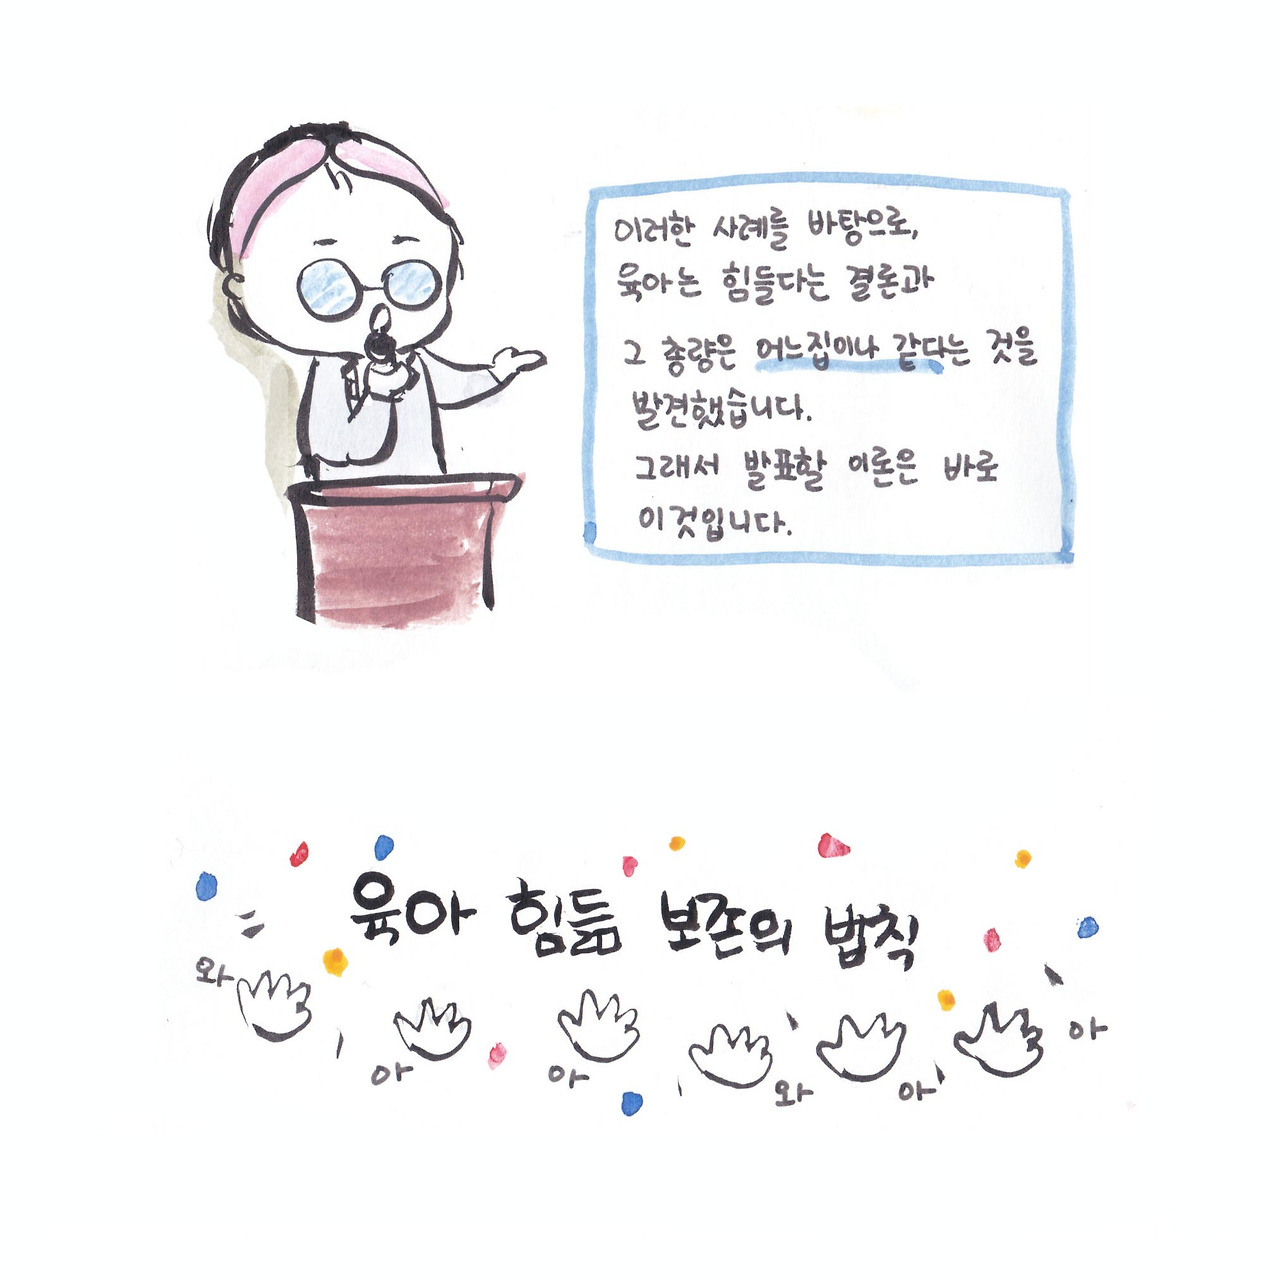 이러한 사례를 바탕으로,
육아는 힘들다는 결론과
그 총량은 어느집이나 같다는 것을
발견했습니다.
그래서 발표할 이론은 바로
이것입니다.
육아 힘듦 보존의 법칙
와
아
아
와
아
아